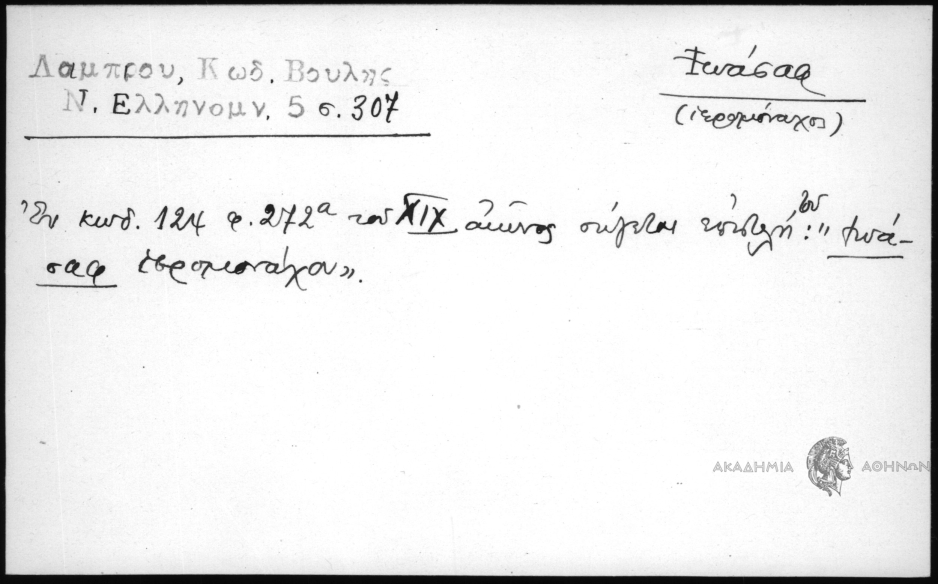 Λαμπρου, Κωδ. Βουλης
Ν. Ελληνομν. 5 σ. 307
Ἰωάσαφ
(ἱερομόναχος)
Ἐν κωδ. 124 φ. 272α τοῦ XIX αἰῶνος σῴζεται ἐπιστολή τοῦ: "Ἰωά-
σαφ ἱερομονάχου».
ΑΚΑΔΗΜΙΑ ΑΘΗΝΩΝ